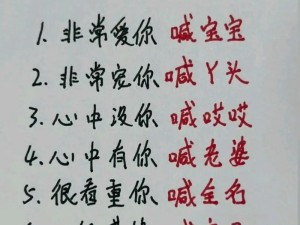 1. 非常爱你 喊宝宝
2. 非常宠你 喊丫头
3. 心中没你 喊哎哎
4. 心中有你 喊老婆
5. 很看重你 喊全名